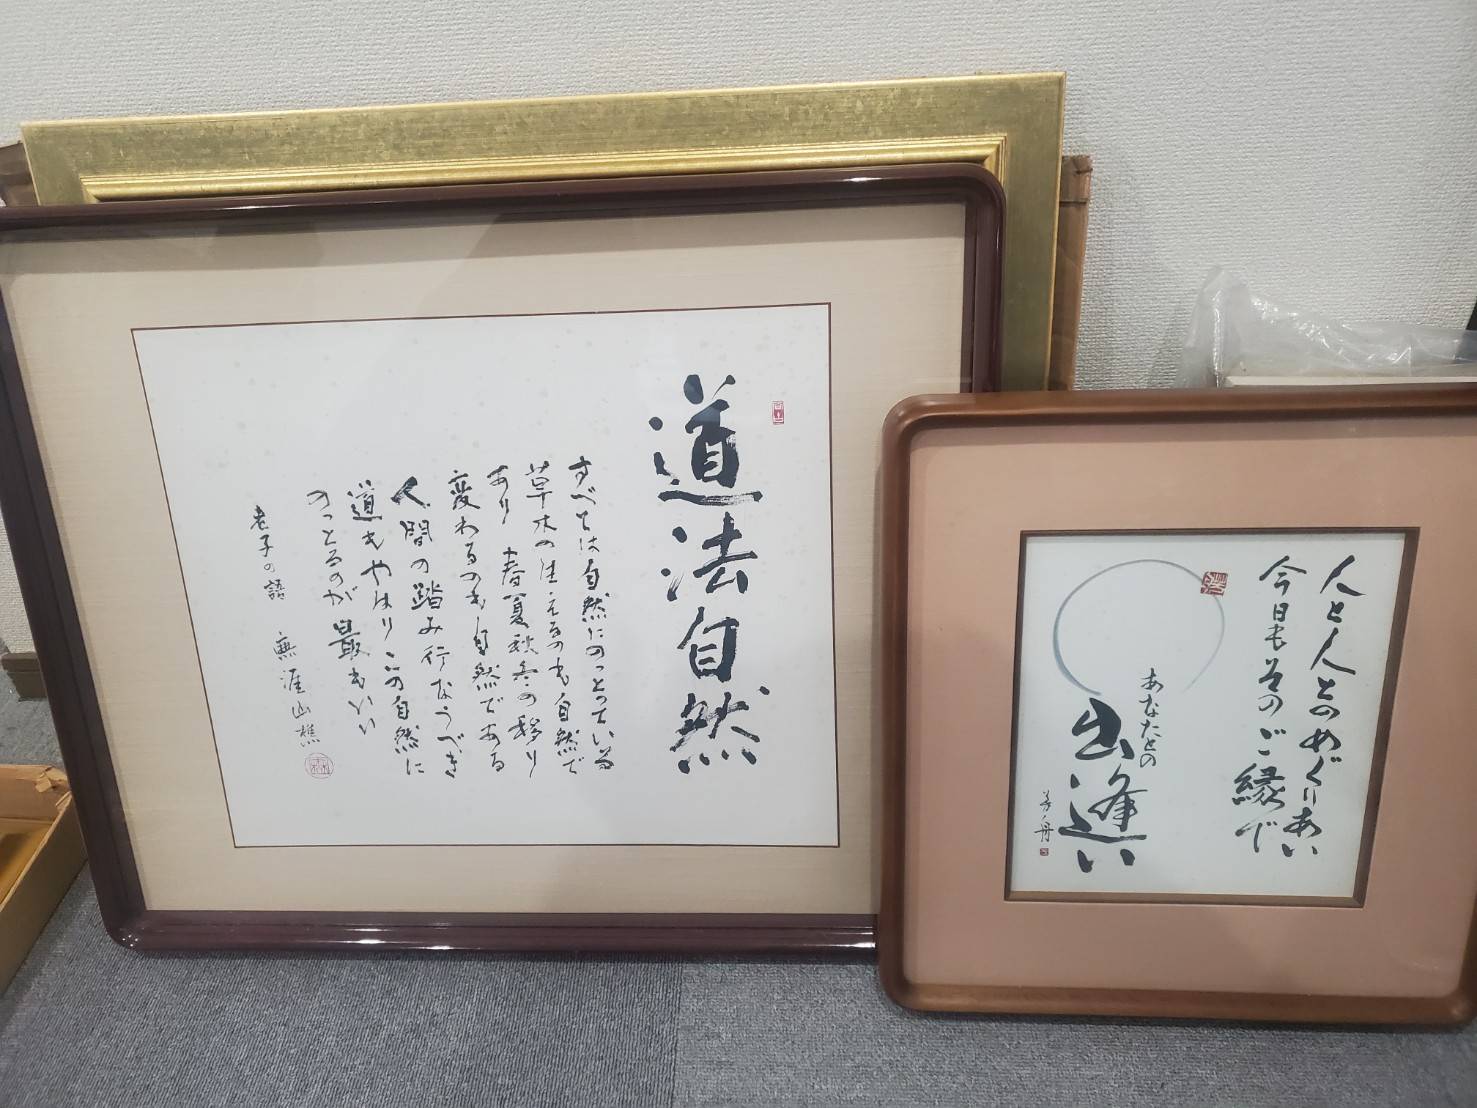 道法自然
すべては自然にのっとっている
草木の生えるのも自然で
あり 春夏秋冬の移り
変わるのも自然である
人間の踏み行なうべき
道もやはりこの自然に
のっとるのが最もいい
老子の語 無涯山樵
人と人とのめぐりあい
今日もそのご縁で
あなたとの
出逢い